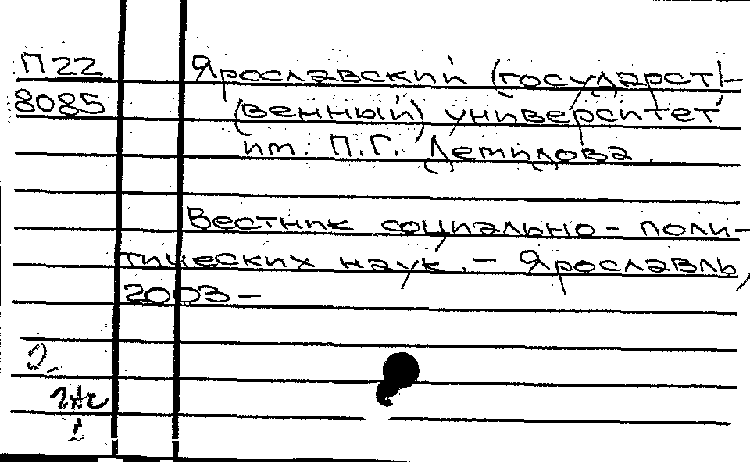 П22
8085
Ярославский (государст-
(венный) университет
им. П.Г. Демидова.
Вестник социально-поли-
тических наук. - Ярославль,
2003-